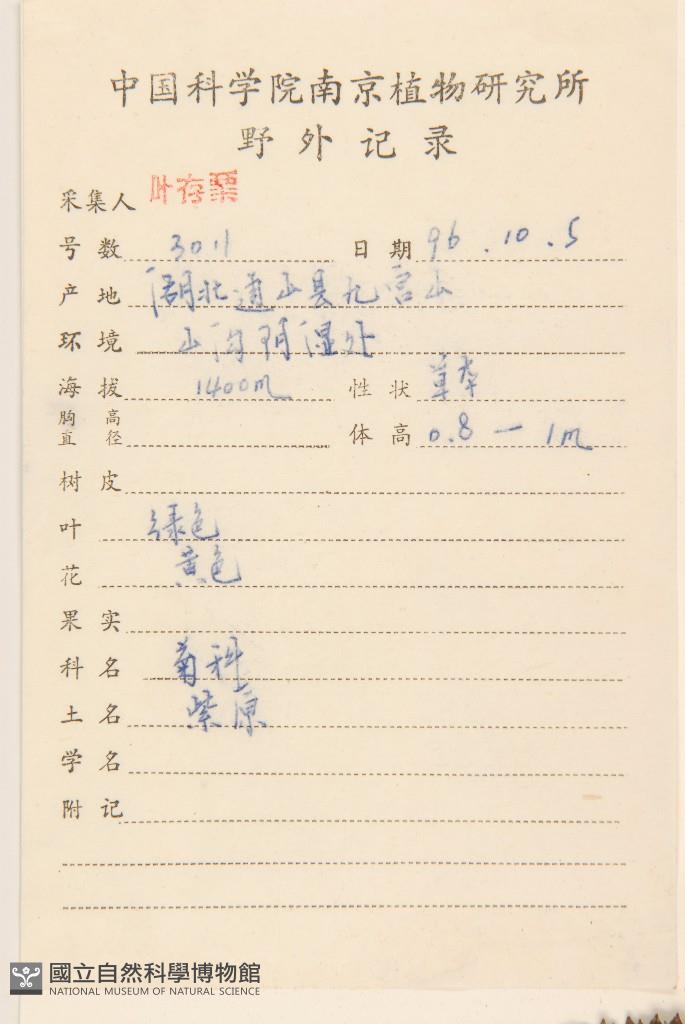 中国科学院南京植物研究所
野外记录
采集人 叶存粟
号数 3011 日期 96.10.5
产地 湖北通山县九宫山
环境 山沟阴湿处
海拔 1400m 性状 草本
胸高直径 体高 0.8 — 1m
树皮
叶 绿色
花 黄色
果实
科名 菊科
土名 紫原
学名
附记
國立自然科學博物館
NATIONAL MUSEUM OF NATURAL SCIENCE